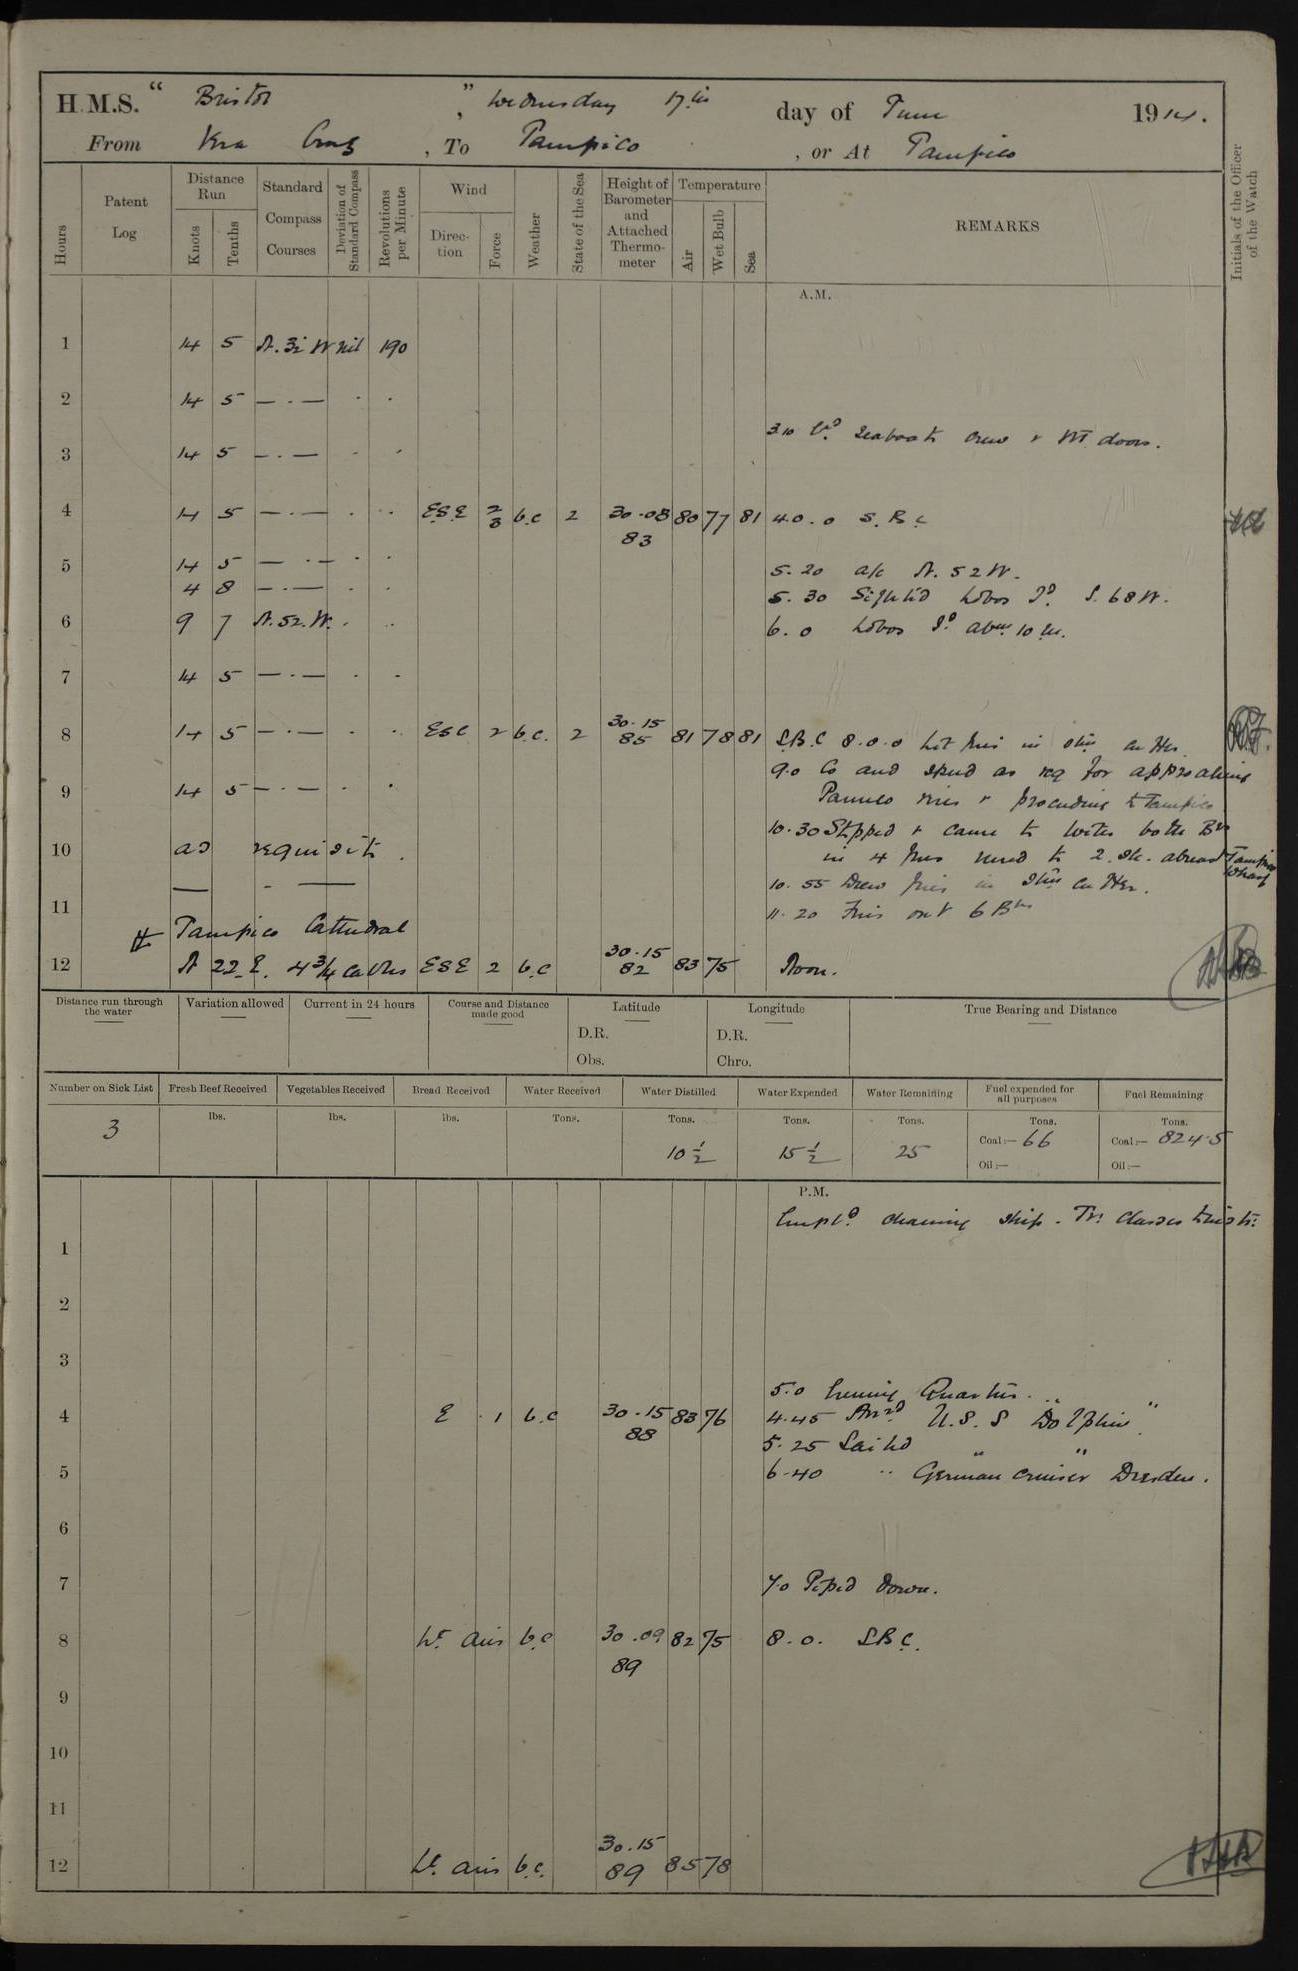 H.M.S. “ Bristol ”, Wednesday 17th day of June 1914.
From Vera Cruz, To Tampico, or At Tampico
Hours
Patent Log
Distance Run
Knots
Tenths
Standard Compass Courses
Deviation of Standard Compass
Revolutions per Minute
Wind
Direction
Force
Weather
State of the Sea
Height of Barometer and Attached Thermometer
Temperature
Air
Wet Bulb
Sea
REMARKS
Initials of the Officer of the Watch
A.M.
1 14 5 N. 32 W nil 190
2 14 5 — . — . .
3.10 Ex.d Seaboats crew & WT doors.
3 14 5 — . — . .
4 14 5 — . — . .. E.S.E 2/3 b.c 2 30.08 83 80 77 81 4.0.0 S.B.C
5 14 5 — . — . .
5.20 a/c N. 52 W.
4 8 — . — . .
5.30 Sighted Lobos I.d S. 68 W.
6 9 7 N. 52. W. . ..
6.0 Lobos I.d abm 10 m.
7 14 5 — . — . .
8 14 5 — . — . .. ESE 2 b.c. 2 30.15 85 81 78 81 S.B.C 8.0.0 Lit fires in stm cutter.
9.0 Co and speed as req for approaching
9 14 5 — . — . .
Panuco river & proceeding to Tampico
10.30 Stopped & came to with both Brs
10 as requisite.
in 4 fms veered to 2 sh. abreast Tampico Wharf
10.55 Drew fires in stm cutter.
— . —
11
11.20 Fires out 6 Brs
# Tampico Cathedral
12 N 22 E. 4 3/4 cables ESE 2 b.c 30.15 82 83 75 Noon.
Distance run through the water
Variation allowed
Current in 24 hours
Course and Distance made good
Latitude
D.R.
Obs.
Longitude
D.R.
Chro.
True Bearing and Distance
Number on Sick List
Fresh Beef Received
Vegetables Received
Bread Received
Water Received
Water Distilled
Water Expended
Water Remaining
Fuel expended for all purposes
Fuel Remaining
lbs.
lbs.
lbs.
Tons.
Tons.
Tons.
Tons.
Tons.
Tons.
3 10 1/2 15 1/2 25 Coal:— 66 Coal:— 824.5
Oil:— Oil:—
P.M.
Empl.d cleaning ship. Tr. classes
1
2
3
5.0 Evening Quarters.
4 E 1 b.c 30.15 88 83 76 4.45 Arr.d U.S.S “Dolphin”.
5.25 Sailed " "
5
6.40 " German cruiser Dresden.
6
7 7.0 Piped down.
8 Lt. airs b.c 30.09 89 82 75 8.0. S.B.C.
9
10
11
12 Lt. airs b.c. 30.15 89 85 78